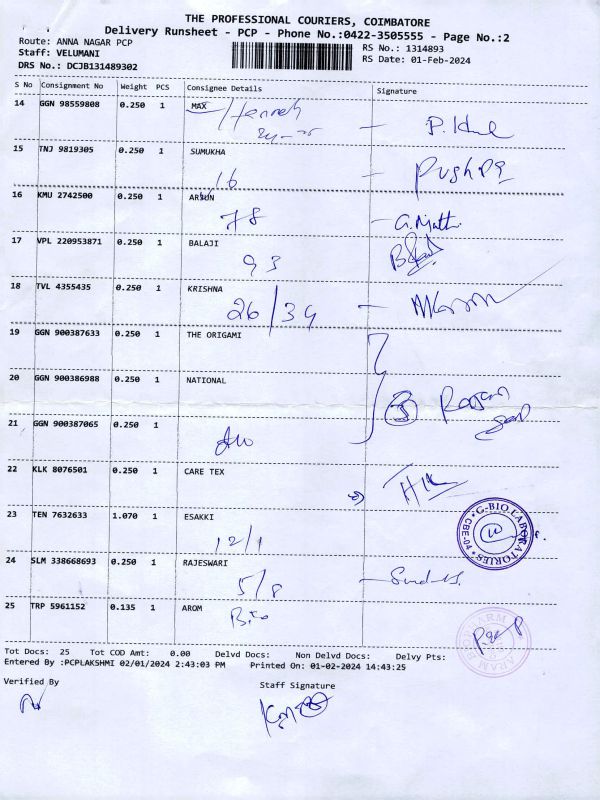 THE PROFESSIONAL COURIERS, COIMBATORE
Delivery Runsheet - PCP - Phone No.:0422-3505555 - Page No.:2
Route: ANNA NAGAR PCP
Staff: VELUMANI
DRS No.: DCJB131489302
RS No.: 1314893
RS Date: 01-Feb-2024
S No Consignment No Weight PCS Consignee Details Signature
14 GGN 98559808 0.250 1 MAX
15 TNJ 9819305 0.250 1 SUMUKHA
16 Pushpa
16 KMU 2742500 0.250 1 ARJUN
78
17 VPL 220953871 0.250 1 BALAJI
93
18 TVL 4355435 0.250 1 KRISHNA
26/34
19 GGN 900387633 0.250 1 THE ORIGAMI
20 GGN 900386988 0.250 1 NATIONAL
3
21 GGN 900387065 0.250 1
22 KLK 8076501 0.250 1 CARE TEX
23 TEN 7632633 1.070 1 ESAKKI
12/1
G-BIO LABORATORIES
CBE-04
24 SLM 338668693 0.250 1 RAJESWARI
5/8
25 TRP 5961152 0.135 1 AROM
Tot Docs: 25 Tot COD Amt: 0.00 Delvd Docs: Non Delvd Docs: Delvy Pts:
Entered By :PCPLAKSHMI 02/01/2024 2:43:03 PM Printed On: 01-02-2024 14:43:25
Verified By Staff Signature